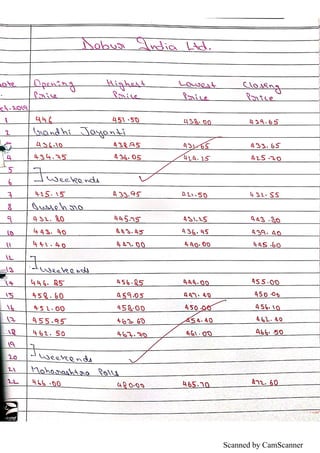 Dabur India Ltd.
Date Opening Highest Lowest Closing
Price Price Price Price
Oct-2019
1 446 451.50 438.00 439.65
2 Gandhi Jayanti
3 436.10 438.95 431.65 433.65
4 434.75 436.05 425.20
5
6 Weekends
7 425.15 433.95 421.50 431.55
8 Dussehra
9 432.80 445.75 431.25 443.80
10 442.90 443.45 436.45 439.40
11 441.40 447.00 440.00 445.60
12
13 Weekends
14 446.85 456.85 444.00 455.00
15 458.60 459.05 447.40 450.05
16 451.00 458.00 450.00 456.10
17 455.95 463.60 454.40 462.40
18 462.50 467.70 461.00 466.50
19
20 Weekends
21 Maharashtra Polls
22 466.00 480.00 465.70 472.60
Scanned by CamScanner